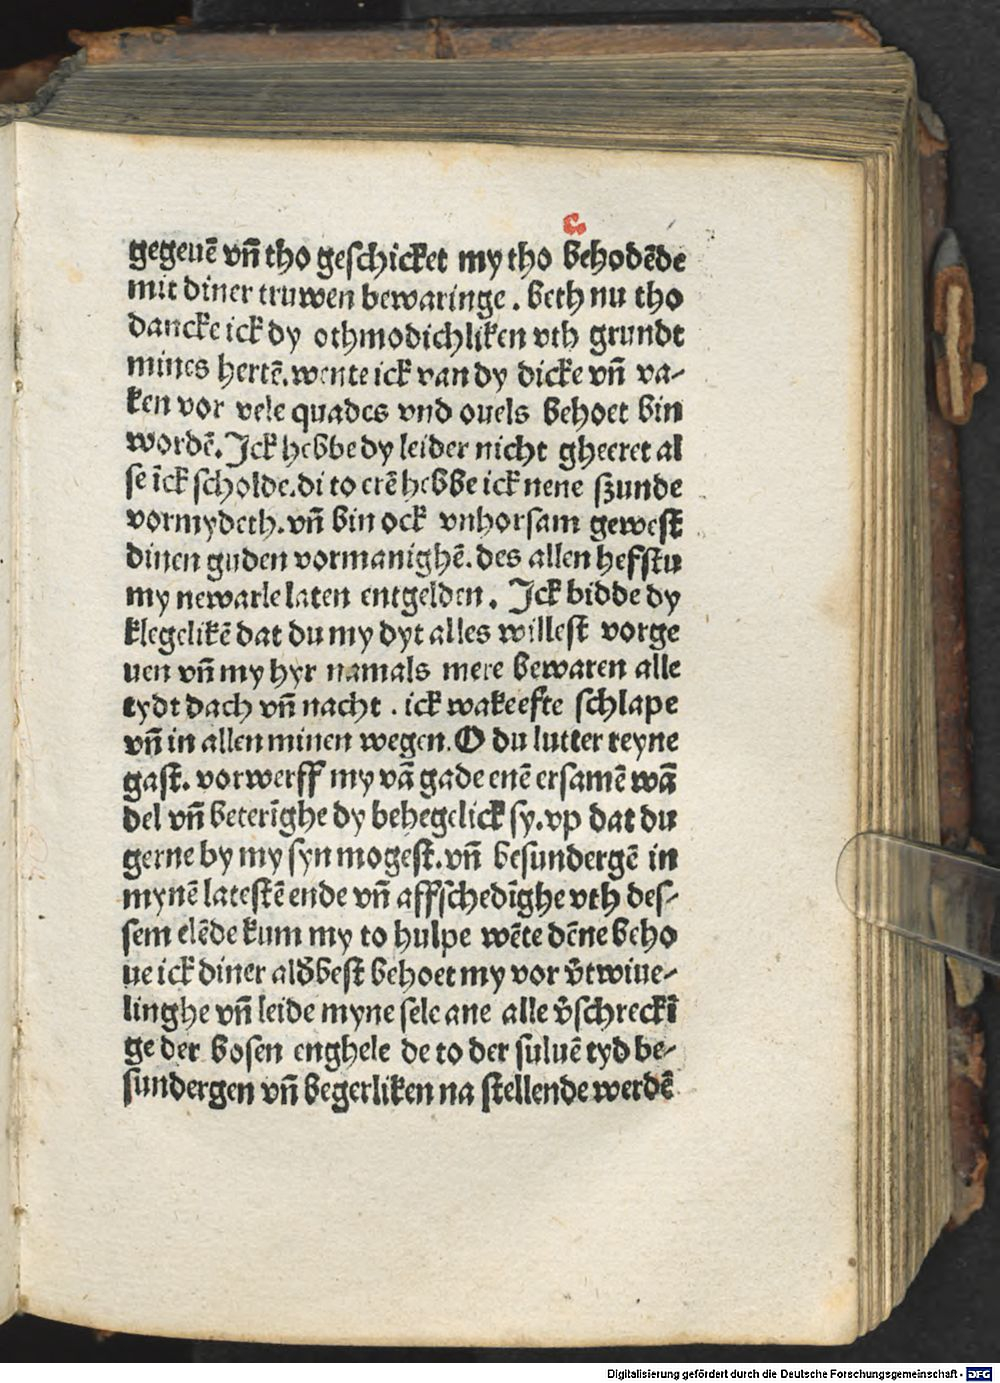 c
gegeuē vñ tho geschicket my tho behodēde
mit diner truwen bewaringe . beth nu tho
dancke ick dy othmodichliken vth grundt
mines hertē. wente ick van dy dicke vñ va-
ken vor vele quades vnd ouels behoet bin
wordē. Ick hebbe dy leider nicht gheeret al
se ick scholde. di to erē hebbe ick nene szunde
vormydeth. vñ bin ock vnhorsam gewest
dinen guden vormanighē. des allen hefstu
my newarle laten entgelden . Ick bidde dy
klegelikē dat du my dyt alles willest vorge
uen vñ my hyr namals mere bewaren alle
tydt dach vñ nacht . ick wake efte schlape
vñ in allen minen wegen. O du lutter reyne
gast. vorwerff my vā gade enē ersamē wā
del vñ beterīghe dy behegelick sy. vp dat du
gerne by my syn mogest. vñ besundergē in
mynē latestē ende vñ affschedīghe vth des-
sem elēde kum my to hulpe wēte dēne beho
ue ick diner alđbest behoet my vor v̄twiue-
linghe vñ leide myne sele ane alle v̄schreckī
ge der bosen enghele de to der suluē tyd be-
sundergen vñ begerliken na stellende werdē
Digitalisierung gefördert durch die Deutsche Forschungsgemeinschaft - DFG